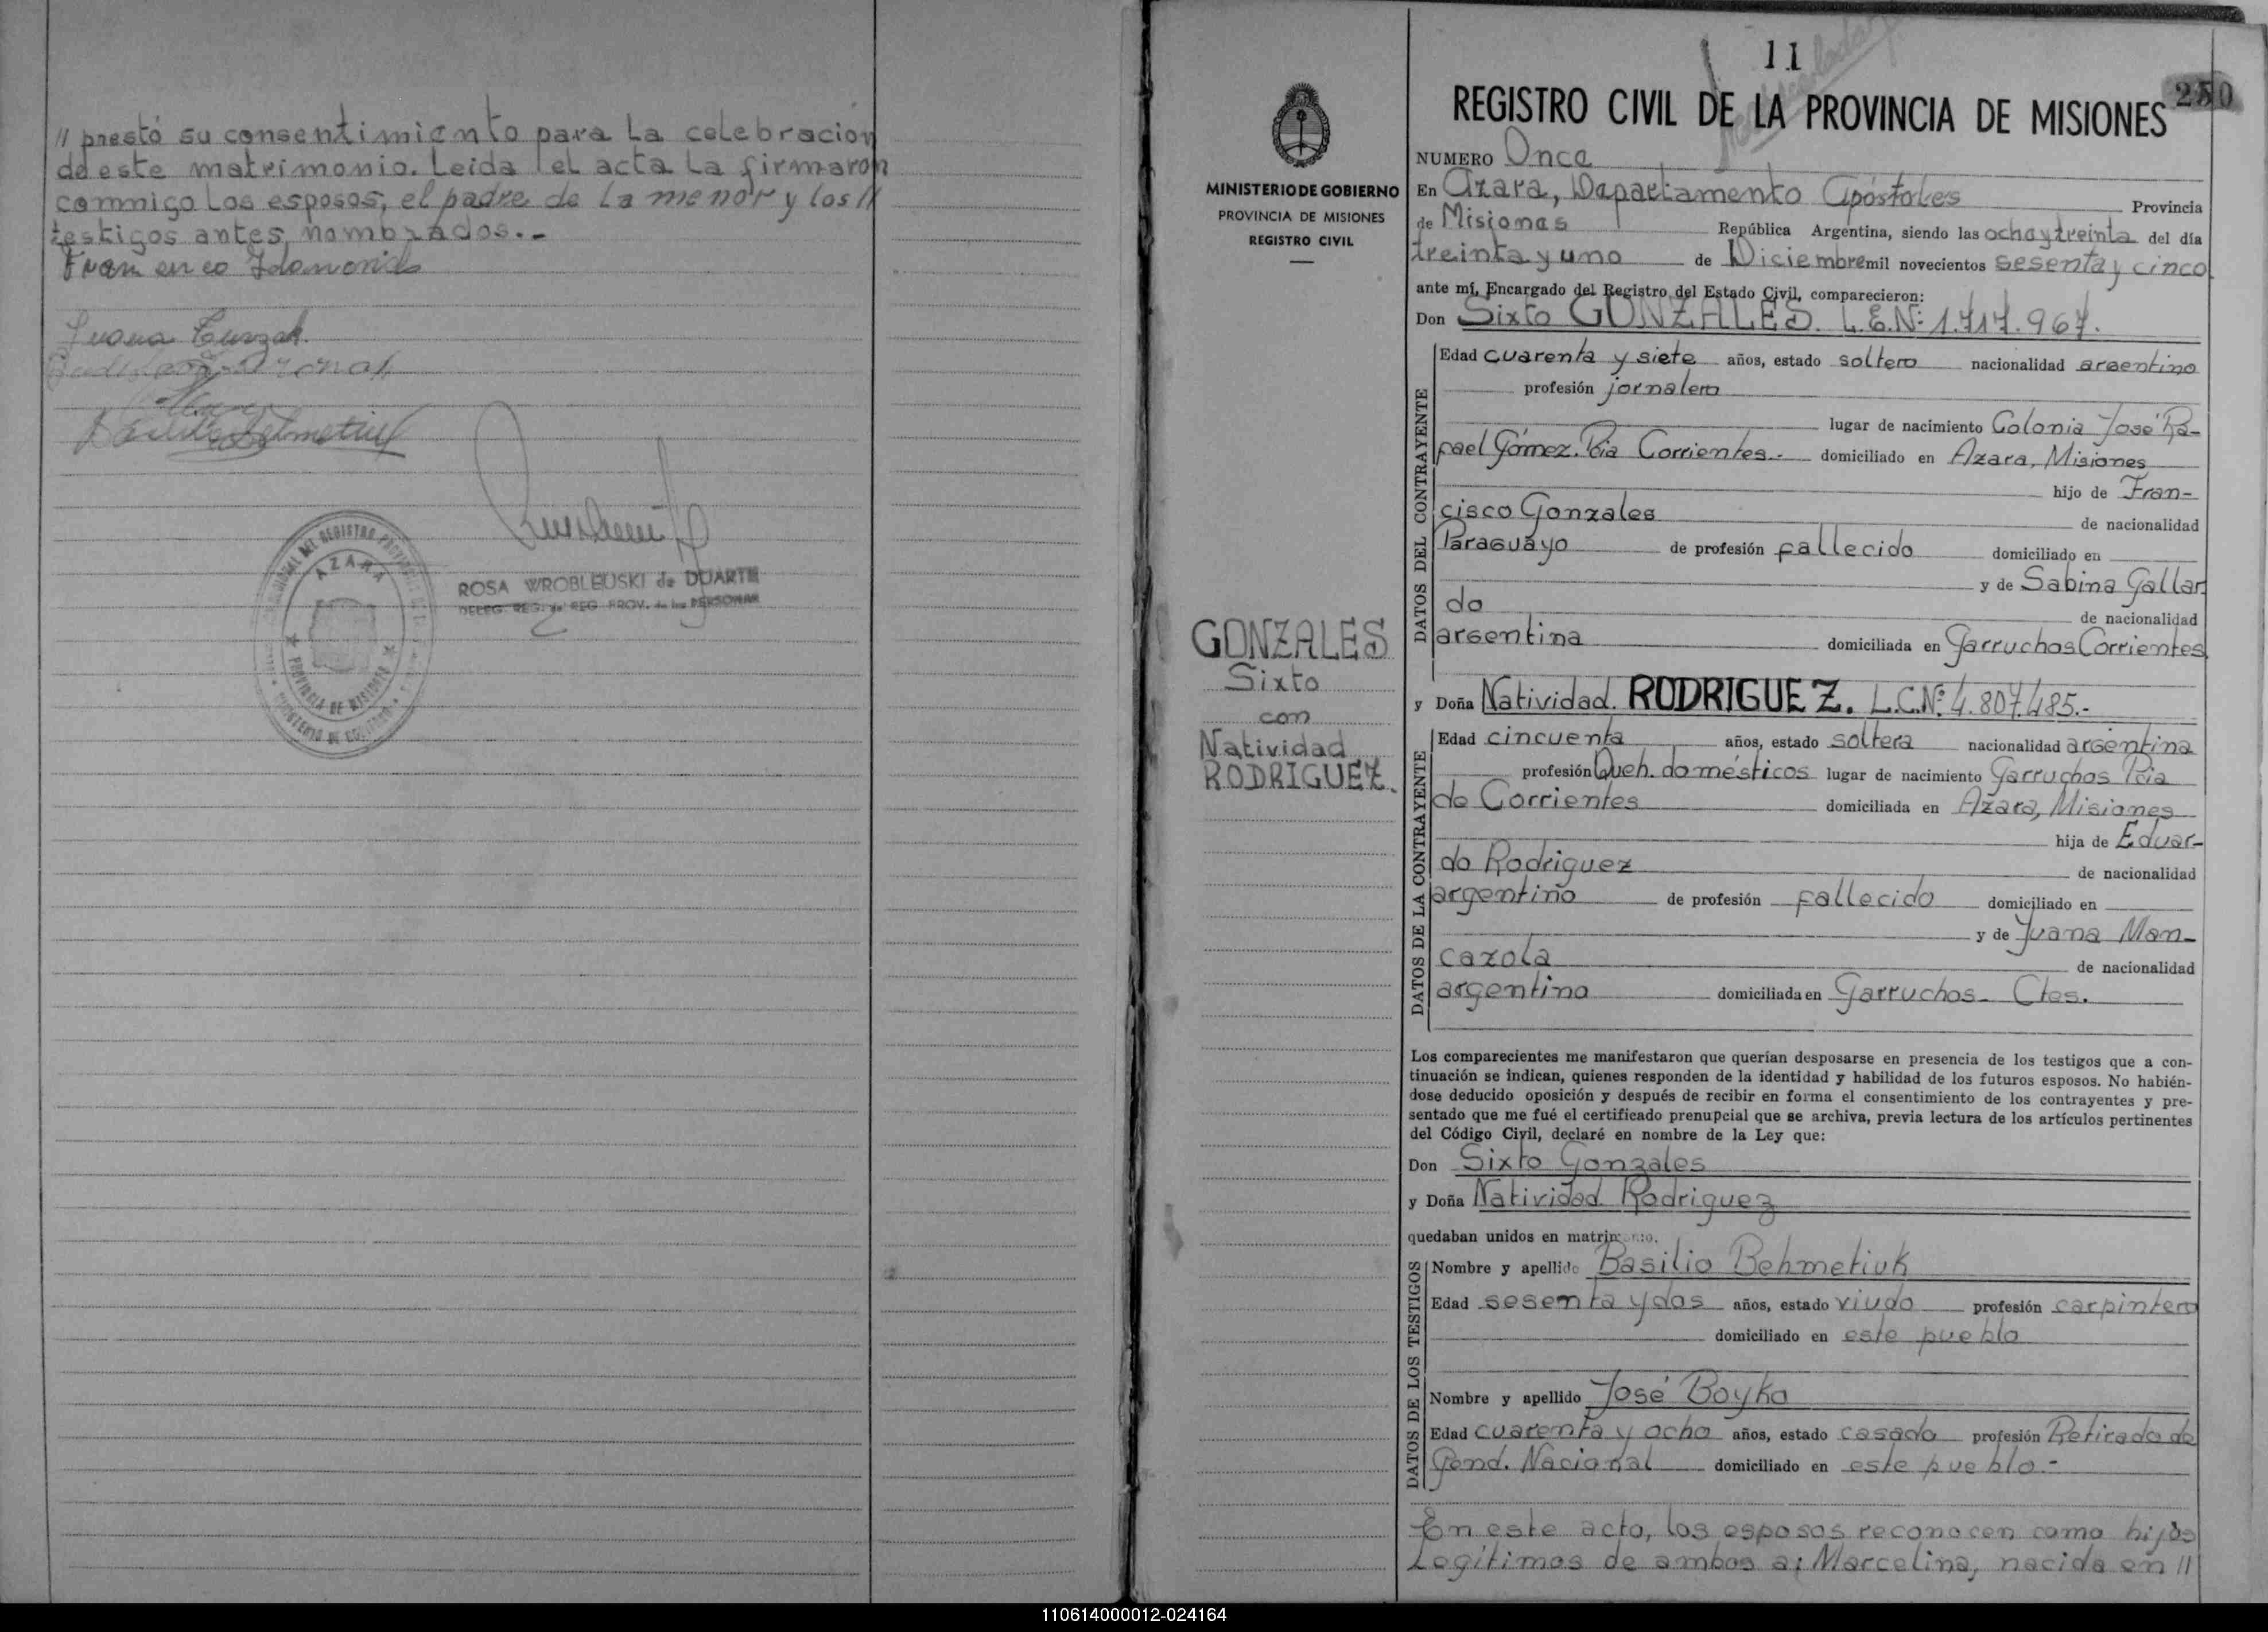 // prestó su consentimiento para la celebracion
de este matrimonio. Leida el acta la firmaron
conmigo los esposos, el padre de la menor y los //
testigos antes nombrados.-
Juana
ROSA WROBLEUSKI de DUARTE
DELEG. REG. del REG. PROV. de las PERSONAS
AZARA
PROVINCIA DE MISIONES
MINISTERIO DE GOBIERNO
PROVINCIA DE MISIONES
REGISTRO CIVIL
GONZALES
Sixto
con
Natividad
RODRIGUEZ.
11
250
REGISTRO CIVIL DE LA PROVINCIA DE MISIONES
NUMERO Once
En Azara, Departamento Apóstoles Provincia
de Misiones República Argentina, siendo las ocho y treinta del día
treinta y uno de Diciembre mil novecientos sesenta y cinco
ante mí, Encargado del Registro del Estado Civil, comparecieron:
Don Sixto GONZALES. L.E.Nº: 1.717.967.
DATOS DEL CONTRAYENTE
Edad cuarenta y siete años, estado soltero nacionalidad argentino
profesión jornalero
lugar de nacimiento Colonia José Ra-
fael Gómez. Pcia Corrientes.- domiciliado en Azara, Misiones
hijo de Fran-
cisco Gonzales de nacionalidad
Paraguayo de profesión fallecido domiciliado en
y de Sabina Gallar
do de nacionalidad
argentina domiciliada en Garruchos Corrientes
y Doña Natividad RODRIGUEZ. L.C.Nº: 4.807.485.-
DATOS DE LA CONTRAYENTE
Edad cincuenta años, estado soltera nacionalidad argentina
profesión Queh. domésticos lugar de nacimiento Garruchos Pcia
de Corrientes domiciliada en Azara, Misiones
hija de Eduar-
do Rodriguez de nacionalidad
argentino de profesión fallecido domiciliado en
y de Juana Man-
cazola de nacionalidad
argentina domiciliada en Garruchos- Ctes.
Los comparecientes me manifestaron que querían desposarse en presencia de los testigos que a con-
tinuación se indican, quienes responden de la identidad y habilidad de los futuros esposos. No habién-
dose deducido oposición y después de recibir en forma el consentimiento de los contrayentes y pre-
sentado que me fué el certificado prenupcial que se archiva, previa lectura de los artículos pertinentes
del Código Civil, declaré en nombre de la Ley que:
Don Sixto Gonzales
y Doña Natividad Rodriguez
quedaban unidos en matrimonio.
DATOS DE LOS TESTIGOS
Nombre y apellido Basilio Behmetiuk
Edad sesenta y dos años, estado viudo profesión carpintero
domiciliado en este pueblo
Nombre y apellido José Boyko
Edad cuarenta y ocho años, estado casado profesión Retirado de
Gend. Nacional domiciliado en este pueblo.-
En este acto, los esposos reconocen como hijos
Legítimos de ambos a: Marcelina, nacida en //
110614000012-024164